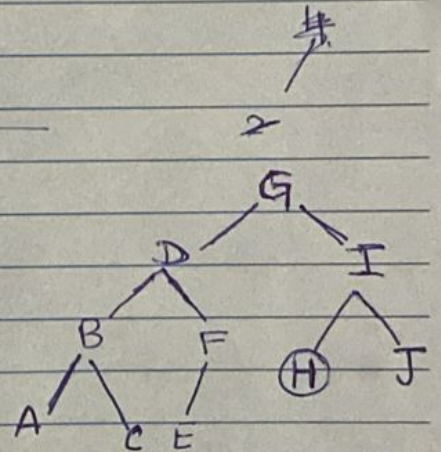 2
G
D I
B F H J
A C E